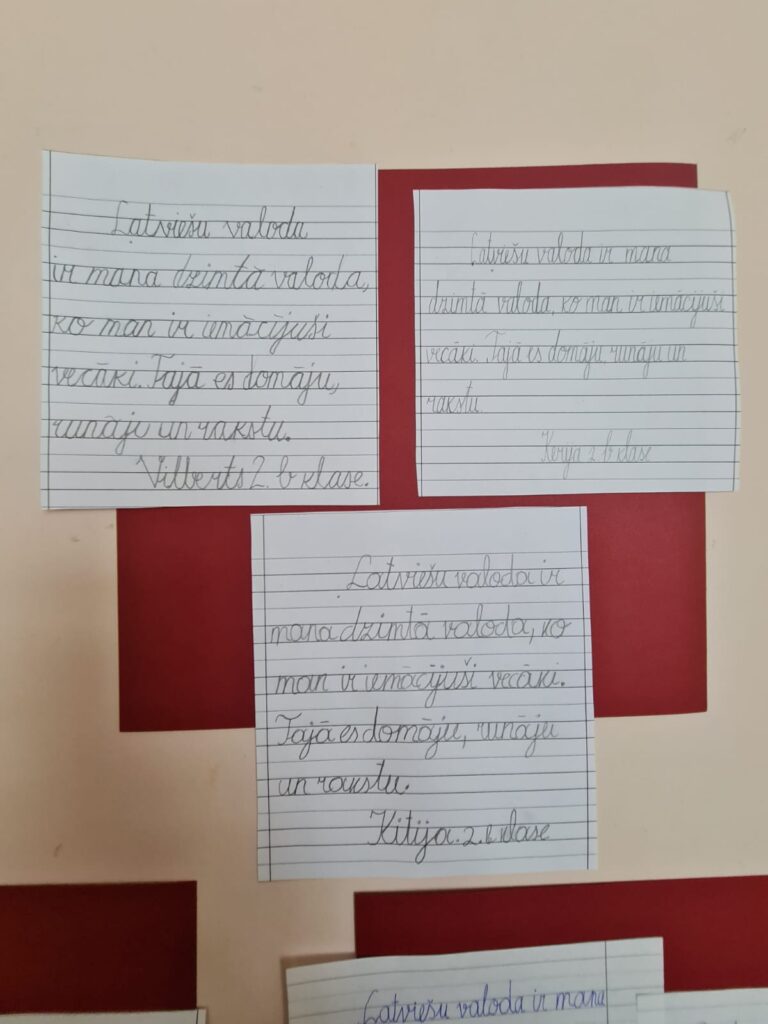 Latviešu valoda
ir mana dzimtā valoda,
ko man ir iemācījuši
vecāki. Tajā es domāju,
runāju un rakstu.
Vilberts 2. b klase.
Latviešu valoda ir mana
dzimtā valoda, ko man ir iemācījuši
vecāki. Tajā es domāju, runāju un
rakstu.
2. b klase
Latviešu valoda ir
mana dzimtā valoda, ko
man ir iemācījuši vecāki.
Tajā es domāju, runāju
un rakstu.
Kitija. 2. b klase
Latviešu valoda ir mana